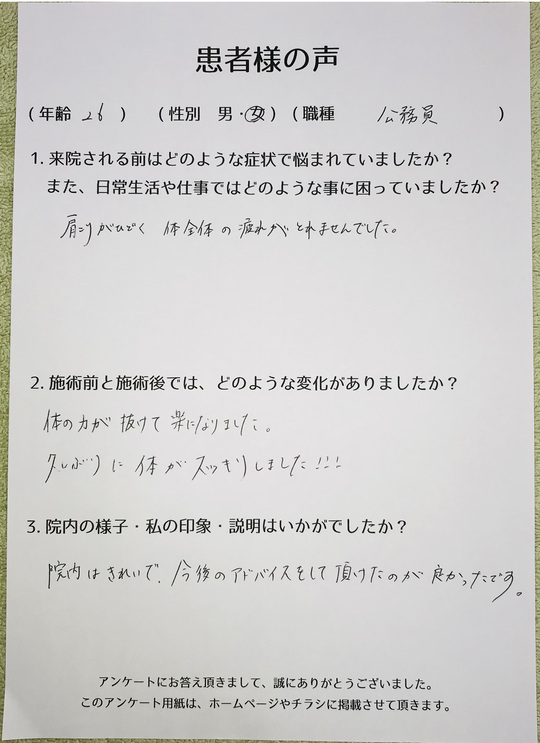 患者様の声
(年齢 26 ) (性別 男・女) (職種 公務員 )
1. 来院される前はどのような症状で悩まれていましたか？
また、日常生活や仕事ではどのような事に困っていましたか？
肩こりがひどく 体全体の疲れがとれませんでした。
2. 施術前と施術後では、どのような変化がありましたか？
体の力が抜けて楽になりました。
久しぶりに体がスッキリしました!!!
3. 院内の様子・私の印象・説明はいかがでしたか？
院内はきれいで、今後のアドバイスをして頂けたのが良かったです。
アンケートにお答え頂きまして、誠にありがとうございました。
このアンケート用紙は、ホームページやチラシに掲載させて頂きます。